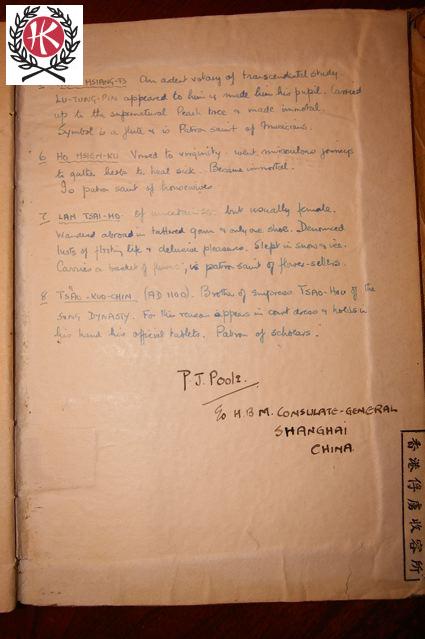 HK
HSIANG-TS An ardent votary of transcendental study.
LU-TUNG-PIN appeared to him & made him his pupil. Carried
up to the supernatural Peach tree & made immortal.
Symbol is a flute & is Patron saint of Musicians.
6. HO HSIEN-KU Vowed to virginity. went miraculous journeys
to gather herbs to heal sick. Became immortal.
Is patron saint of housewives
7. LAN TSAI-HO. Of uncertain sex but usually female.
Wandered abroad in tattered gown & only one shoe. Denounced
lusts of fleeting life & delusive pleasures. Slept in snow & ice.
Carries a basket of flowers, is patron saint of flower-sellers.
8. TSAO-KUO-CHIN. (AD 1100). Brother of empress TSAO-HOU of the
SUNG DYNASTY. For this reason appears in court dress & holds in
his hand his official tablets. Patron of scholars.
P.J. Pool
c/o H.B.M. CONSULATE-GENERAL
SHANGHAI
CHINA
香港俘虜收容所